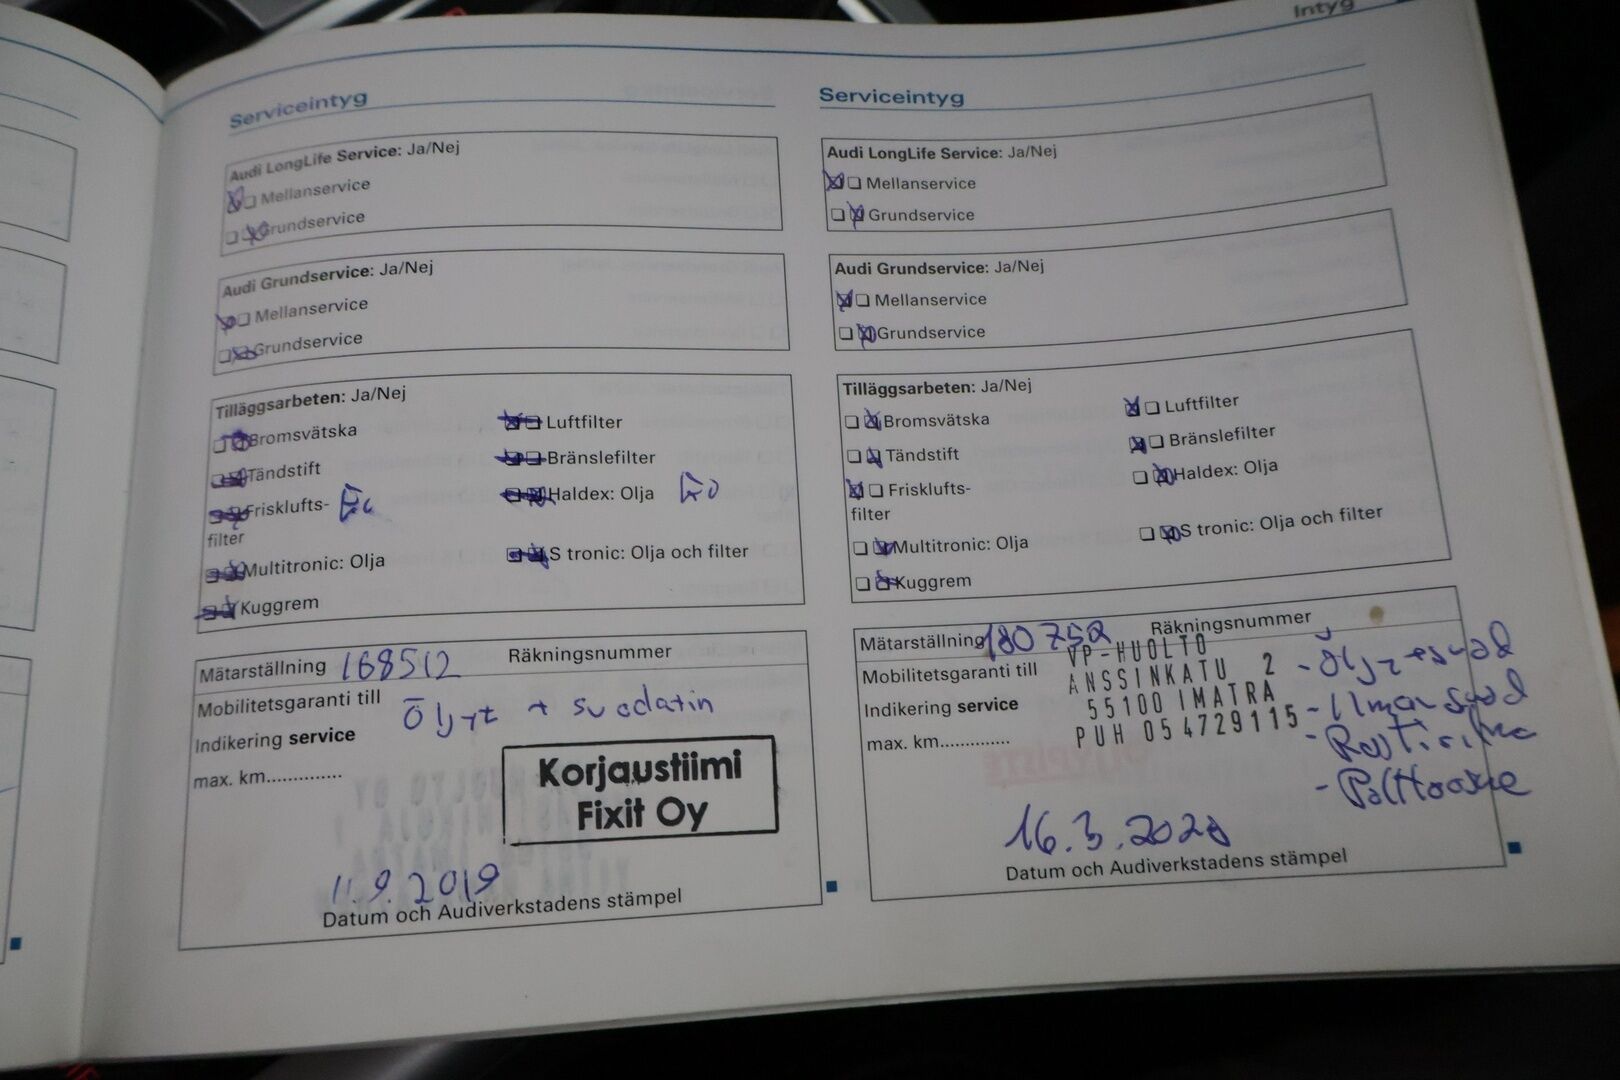 Intyg
Serviceintyg
Audi LongLife Service: Ja/Nej
Mellanservice
Grundservice
Audi Grundservice: Ja/Nej
Mellanservice
Grundservice
Tilläggsarbeten: Ja/Nej
Bromsvätska
Luftfilter
Tändstift
Bränslefilter
Frisklufts-
filter
Haldex: Olja
Multitronic: Olja
S tronic: Olja och filter
Kuggrem
Mätarställning 168512 Räkningsnummer
Mobilitetsgaranti till
Öljyt + suodatin
Indikering service
max. km..............
Korjaustiimi
Fixit Oy
11.9.2019
Datum och Audiverkstadens stämpel
Serviceintyg
Audi LongLife Service: Ja/Nej
Mellanservice
Grundservice
Audi Grundservice: Ja/Nej
Mellanservice
Grundservice
Tilläggsarbeten: Ja/Nej
Bromsvätska
Luftfilter
Tändstift
Bränslefilter
Frisklufts-
filter
Haldex: Olja
Multitronic: Olja
S tronic: Olja och filter
Kuggrem
Mätarställning 180752 Räkningsnummer
Mobilitetsgaranti till
Indikering service
max. km.............
VP-HUOLTO
ANSSINKATU 2
55100 IMATRA
PUH 05 4729115
16.3.2020
Datum och Audiverkstadens stämpel